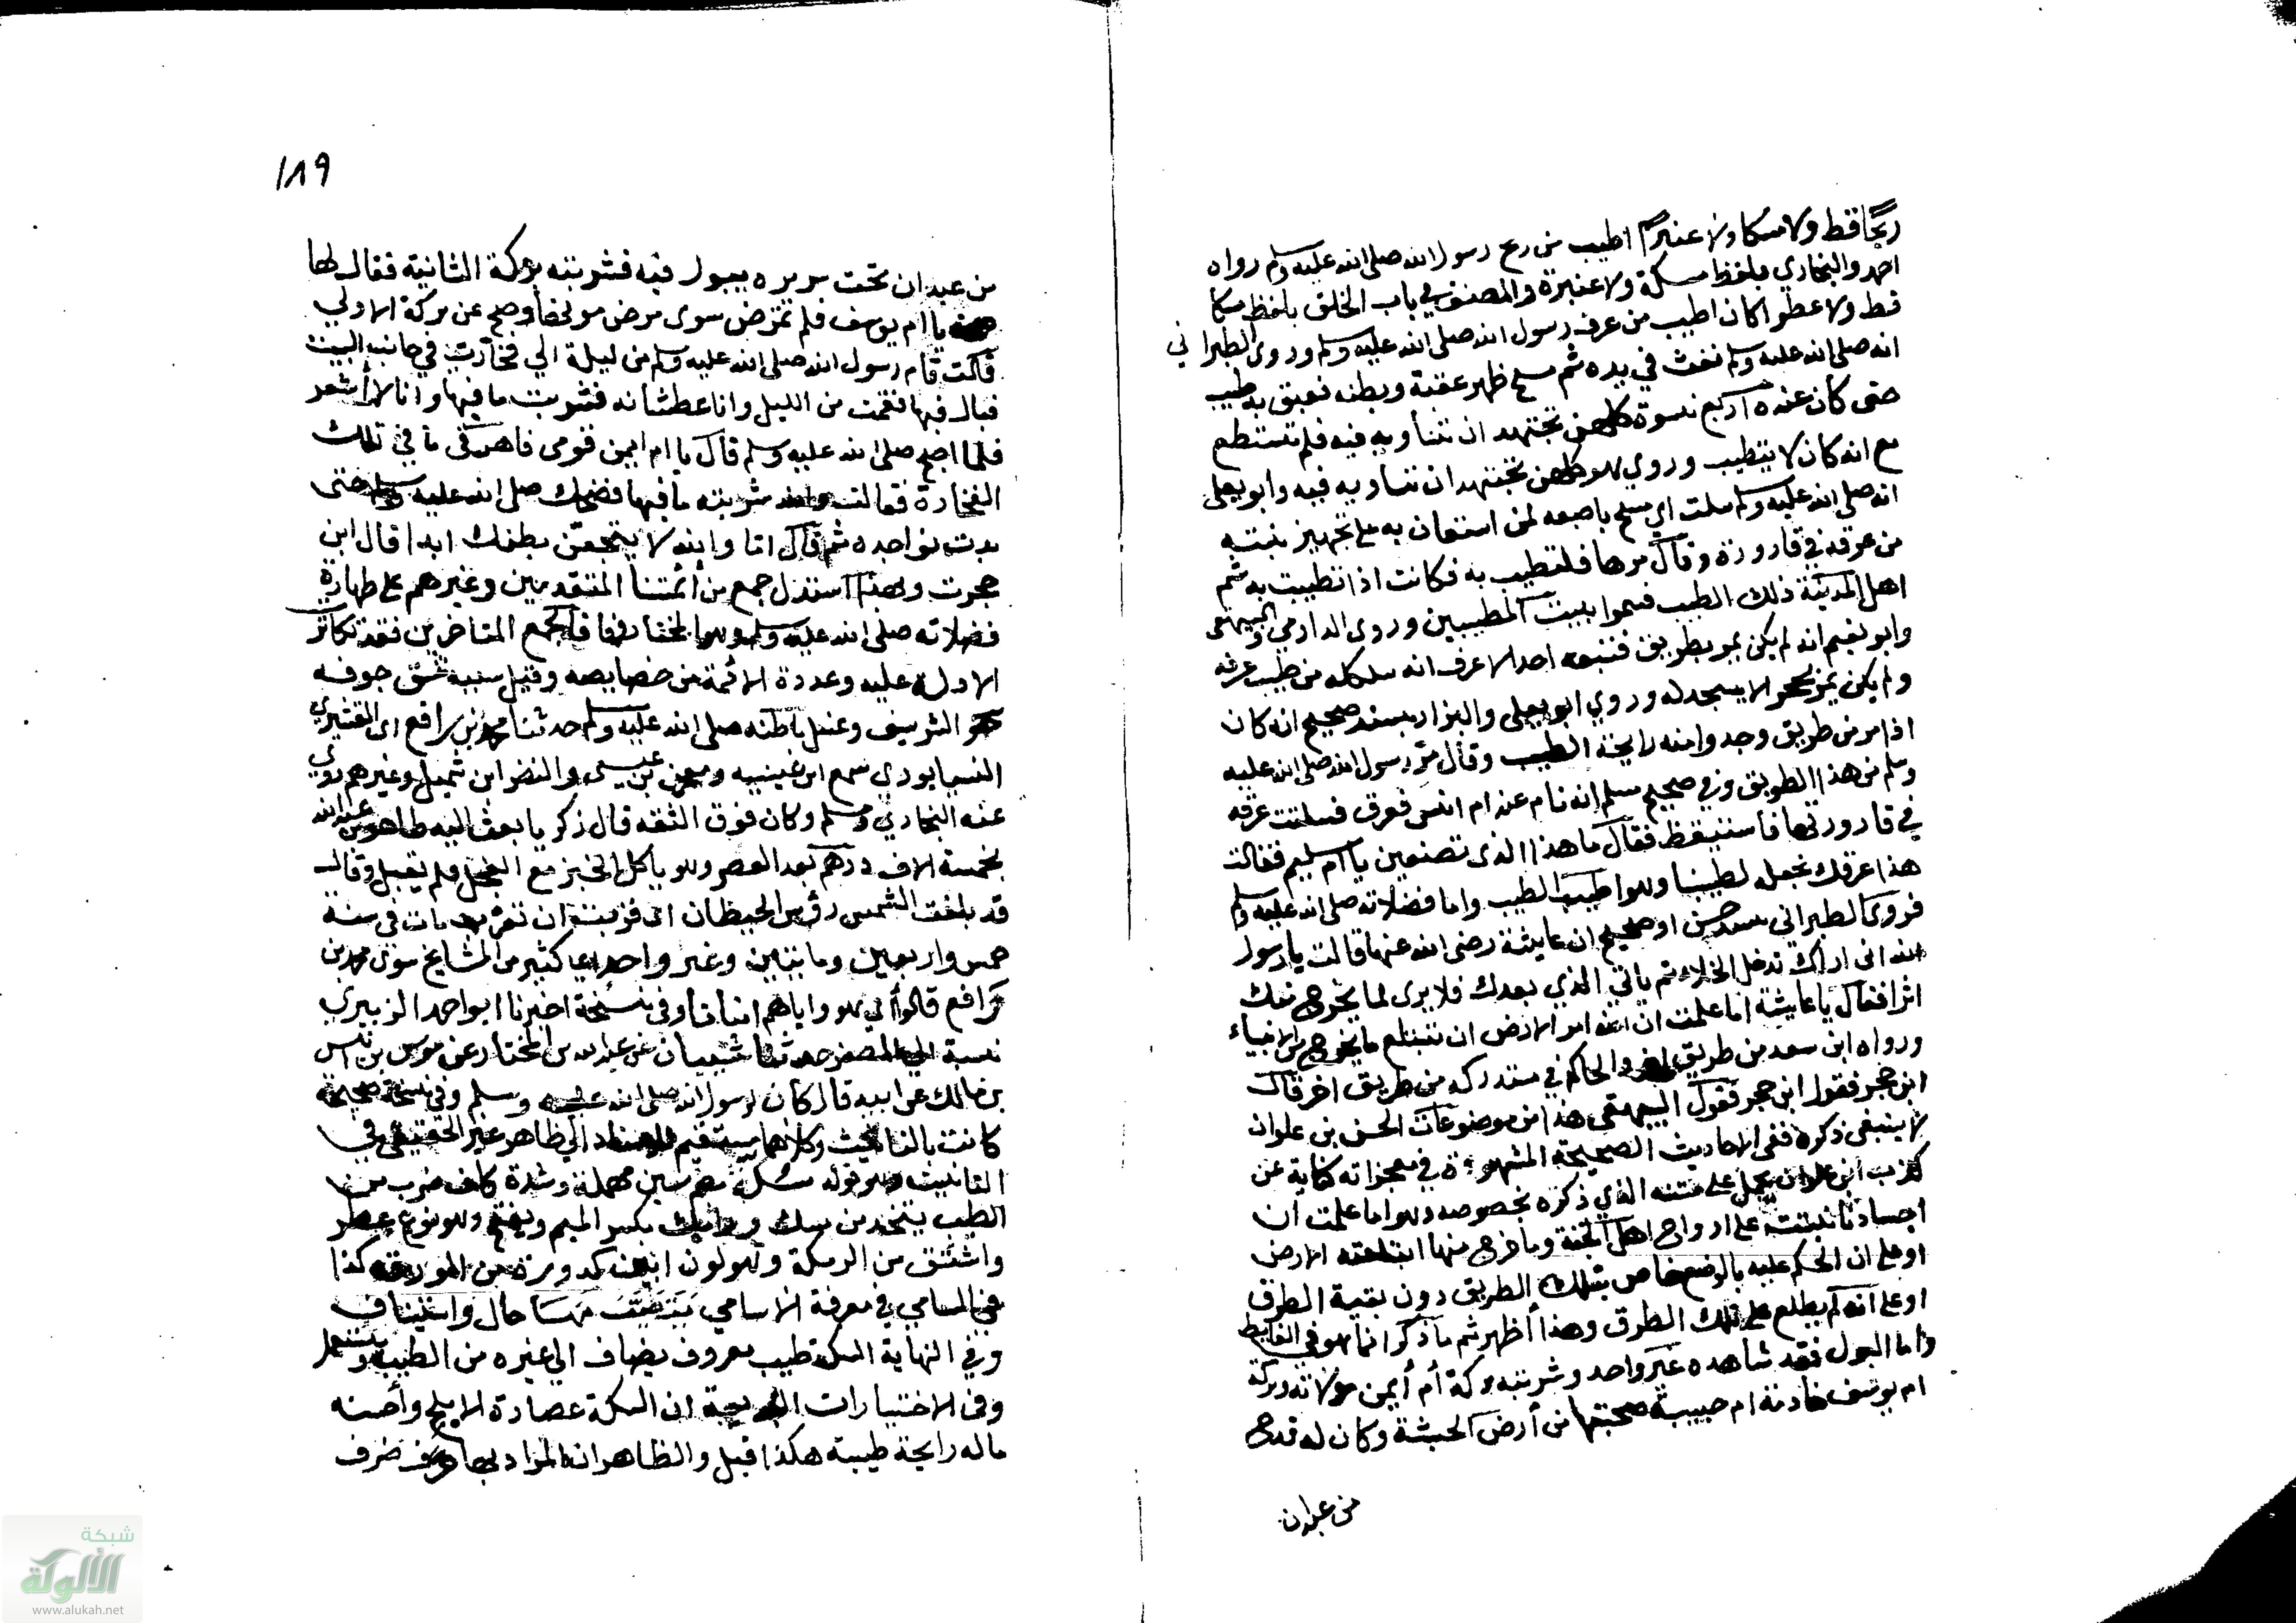 ريحا قط ولا مسكا ولا عنبرا اطيب من ريح رسول الله صلى الله عليه وسلم رواه
احمد والبخاري بلفظ مسكة ولا عنبرة والمصنف في باب الخلق بلفظ مسكا
قط ولا عطرا كان اطيب من عرف رسول الله صلى الله عليه وسلم وروى الطبراني
انه صلى الله عليه وسلم نفث في يده ثم مسح ظهر عقبة وبطنه فعبق به طيب
حتى كان عنده اربع نسوة كلهن تجتهد ان تساويه فيه فلم تستطع
مع انه كان لا يتطيب وروي هو كلهن تجتهد ان تساويه فيه وابو يعلى
انه صلى الله عليه وسلم سلت اي مسح باصبعه لمن استعان به على تجهيز بنته
من عرقه في قارورة وقال مرها فلتطيب به فكانت اذا تطيبت به شم
اهل المدينة ذلك الطيب فسموا بيت المطيبين وروى الدارمي والبيهقي
وابو نعيم انه لم يكن يمر بطريق فيتبعه احد الا عرف انه سلكه من طيب عرقه
ولم يكن يمر بحجر الا يسجد له وروي ابو يعلى والبزار بسند صحيح انه كان
اذا مر من طريق وجدوا منه رايحة الطيب وقال مر رسول الله صلى الله عليه
وسلم من هذا الطريق وفي صحيح مسلم انه نام عند ام انس فعرق فسلتت عرقه
في قارورتها فاستيقظ فقال ما هذا الذي تصنعين يا ام سليم فقالت
هذا عرقك نجعله لطيبنا وهو اطيب الطيب واما فضلاته صلى الله عليه وسلم
فروى الطبراني بسند حسن او صحيح ان عايشة رضى الله عنها قالت يا رسول
الله اني اراك تدخل الخلاء ثم ياتي الذي بعدك فلا يرى لما يخرج منك
اثرا فقال يا عايشة اما علمت ان الله امر الارض ان تبتلع ما يخرج من الانبياء
ورواه ابن سعد من طريق اخر والحاكم في مستدركه من طريق اخر قال
ابن حجر فقول ابن حجر فقول البيهقي هذا من موضوعات الحسن بن علوان
لا ينبغي ذكره ففي الاحاديث الصحيحة المشهورة في معجزاته كفاية عن
كذب ابن علوان يحمل على متنه الذي ذكره بخصوصه وهو اما علمت ان
اجسادنا نبتت على ارواح اهل الجنة وما خرج منها ابتلعته الارض
او على ان الحكم عليه بالوضع خاص بتلك الطريق دون بقية الطرق
او على انه لم يطلع على تلك الطرق وهذا أظهر ثم ما ذكر انما هو في الغايط
واما البول فقد شاهده غير واحد وشربته بركة أم أيمن مولاته وبركة
ام يوسف خادمة ام حبيبة صحبتها من أرض الحبشة وكان له قدح
من عيدان
١٨٩
من عيدان تحت سريره يبول فيه فشربته بركة الثانية فقال لها
صحة يا ام يوسف فلم تمرض سوى مرض موتها وصح عن بركة الاولى
قالت قام رسول الله صلى الله عليه وسلم من ليلة الي فخارة في جانب البيت
فبال فيها فقمت من الليل وانا عطشانه فشربت ما فيها وانا لا أشعر
فلما اصبح صلى الله عليه وسلم قال يا ام ايمن قومى فاهرقى ما في تلك
الفخارة فقالت والله شربت ما فيها فضحك صلى الله عليه وسلم حتى
بدت نواجذه ثم قال اما والله لا يتجعن بطنك ابدا قال ابن
حجرت وبهذا استدل جمع من أئمتنا المتقدمين وغيرهم على طهارة
فضلاته صلى الله عليه وسلم وهو المختار وفاقا لجمع المتاخرين فقد تكاثرت
الادلة عليه وعدده الائمة من خصايصه وقيل سببه شق جوفه
الشريف وغسل باطنه صلى الله عليه وسلم حدثنا محمد بن رافع اى القشيري
النيسابوري سمع ابن عيينيه ومعن بن عيسى والنضر ابن شميل وغيرهم روى
عنه البخاري ومسلم وكان فوق الثقه قال زكريا بعث اليه طاهر بن عبد الله
بخمسة الاف درهم بعد العصر وهو ياكل الخبز مع الفجل فلم يقبل وقال
قد بلغت الشمس رؤس الحيطان اى قربت ان تغرب مات في سنة
خمس واربعين وماتين وغير واحد اى كثير من المشايخ سوى محمد بن
رافع قالوا اى هو واياهم انبانا وفى نسخة اخبرنا ابو احمد الزبيري
نسبة الى المصغر حدثنا شيبان عن عبد الله بن المختار عن موسى بن انس
بن مالك عن ابيه قال كان لرسول الله صلى الله عليه وسلم وفي نسخة صحيحة
كانت بالتانيث وكلاهما مستقيم للاسناد الي ظاهر غير الحقيقى في
التانيث وهو قوله سكة بضم سين مهملة وشدة كاف ضرب من
الطيب يتخذ من مسك ورامك بكسر الميم ويفتح وهو نوع عطر
واشتق من الرمكة وهو لون ابيض كدورته من الورقة كذا
في السامي في معرفة الاسامي يتطيب منها حال واستيناف
وفي النهاية السكة طيب معروف يضاف الى غيره من الطيب ويستعمل
وفى الاختيارات البديعية ان السكة عصارة الابلج وأحسنه
ماله رايحة طيبة هكذا قيل والظاهر ان المراد بها ظرف